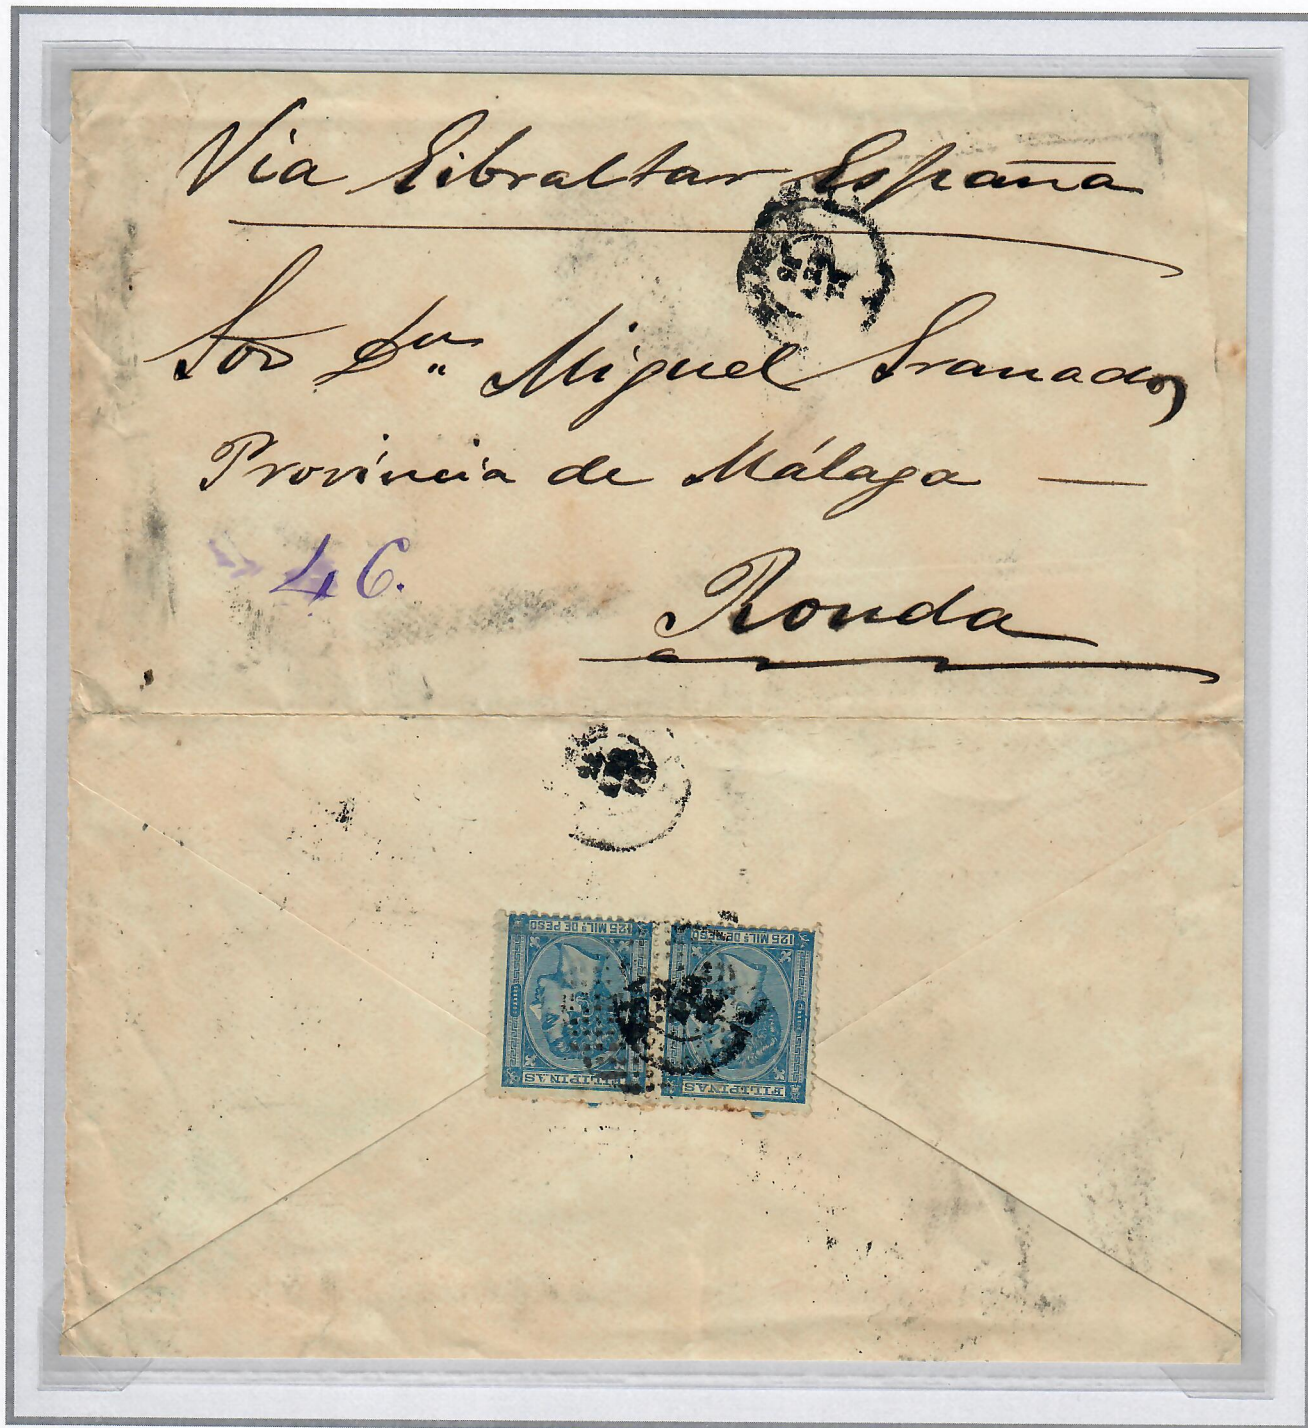 Via Gibraltar España
Sor Dn. Miguel Granados
Provincia de Málaga —
4 C.
Ronda
125 MILS. DE PESO
FILIPINAS
125 MILS. DE PESO
FILIPINAS